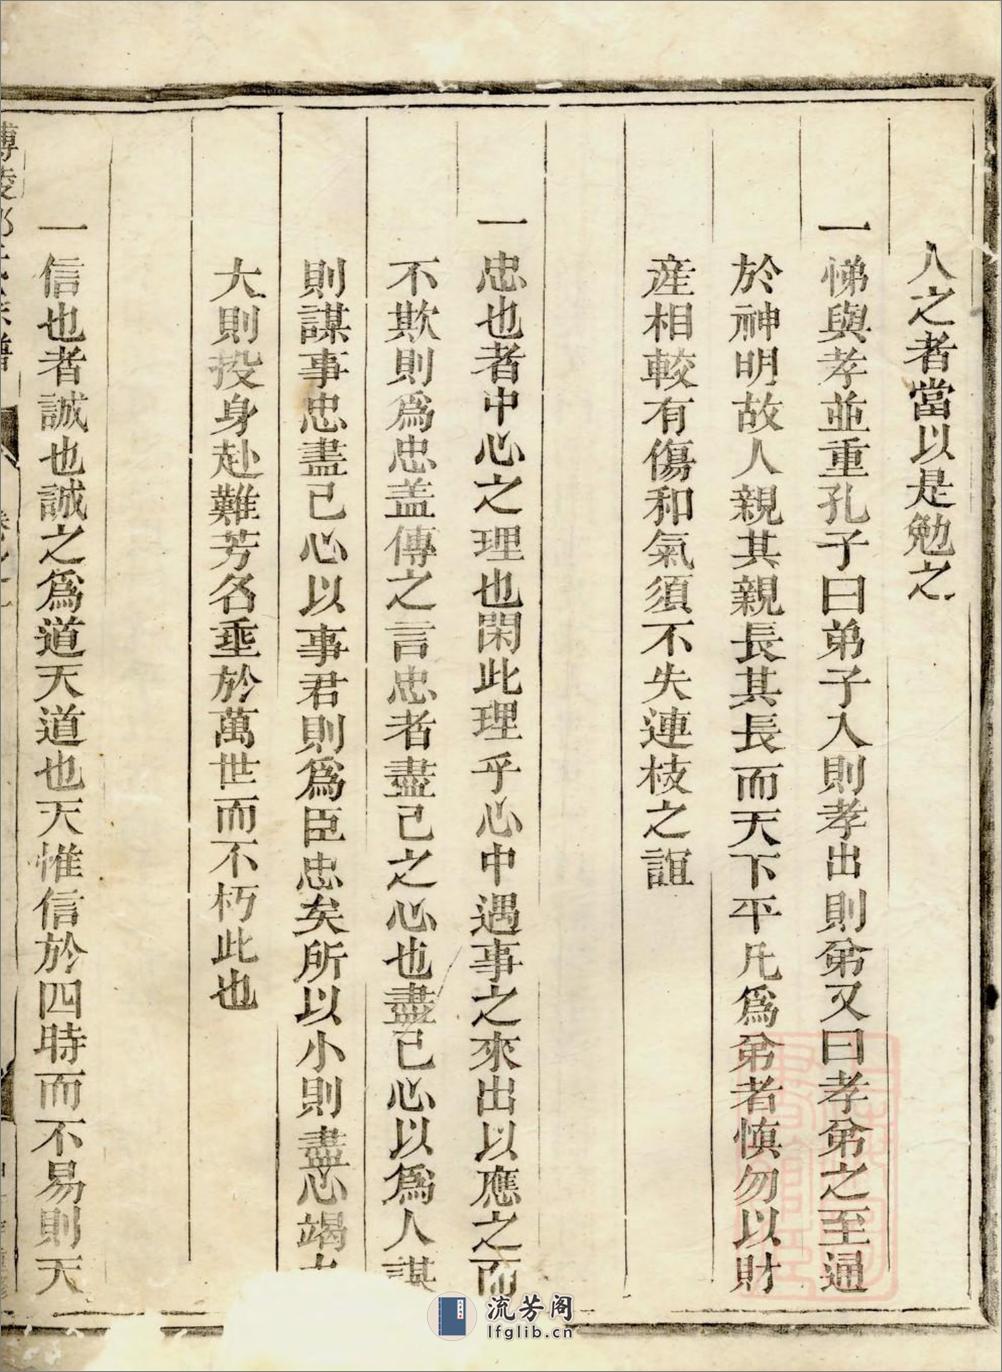 人之者當以是勉之
一悌與孝並重孔子曰弟子入則孝出則弟又曰孝弟之至通
於神明故人親其親長其長而天下平凡爲弟者慎勿以財
産相較有傷和氣須不失連枝之誼
一忠也者中心之理也閑此理乎心中遇事之來出以應之而
不欺則爲忠盖傳之言忠者盡己之心也盡己心以爲人謀
則謀事忠盡己心以事君則爲臣忠矣所以小則盡心竭
大則投身赴難芳名垂於萬世而不朽此也
一信也者誠也誠之爲道天道也天惟信於四時而不易則天
流芳阁
lfglib.cn